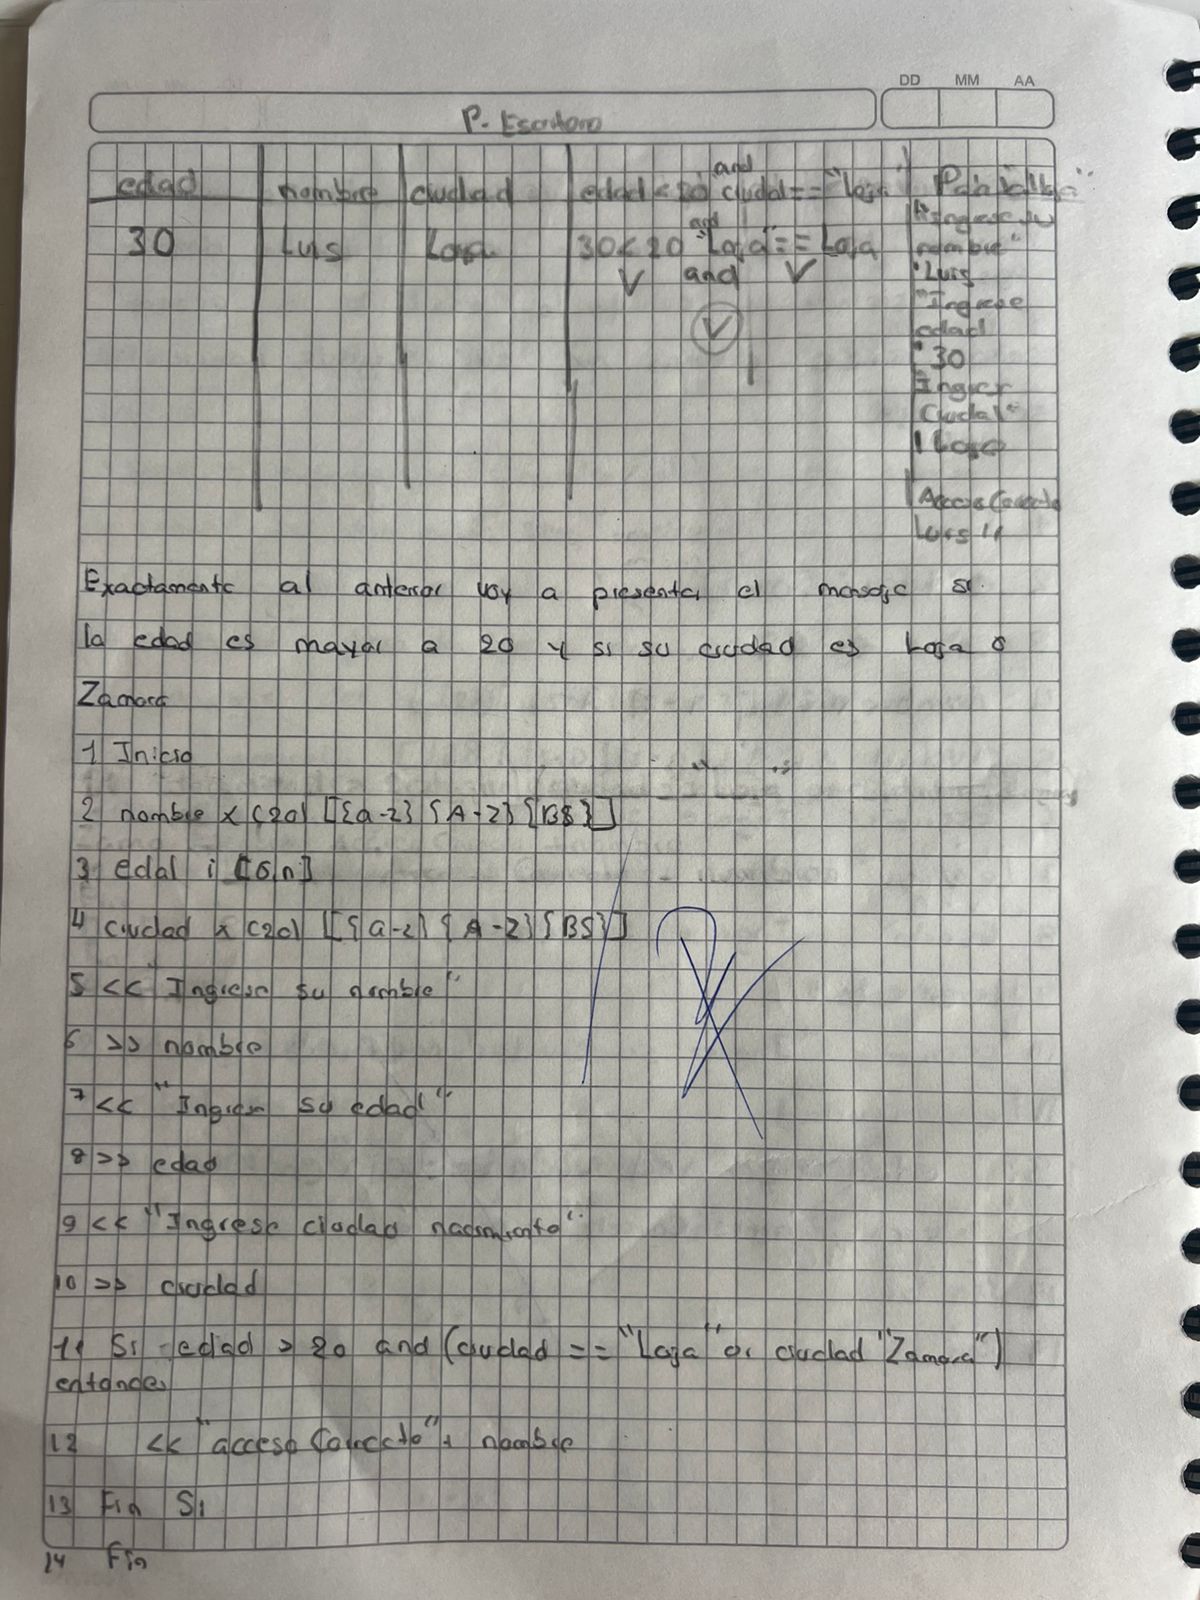 DD MM AA
P. Escritorio
edad nombre ciudad edad < 20 and ciudad == "Loja" Pantalla
30 Luis Loja 30 < 20 and "Loja" == Loja
V and V
V
"Ingrese su
nombre"
"Luis
"Ingrese
edad
" 30
Ingrese
Ciudad"
Loja
Acceso Correcto
Luis
Exactamente al anterior voy a presentar el mensaje si
la edad es mayor a 20 y si su ciudad es Loja o
Zamora
1 Inicio
2 nombre x (20) [[{a-z} {A-z} {BS}]
3 edad i [6,n]
4 Ciudad x (20) [[{a-z} {A-z} {BS}]
5 << Ingrese su nombre"
6 >> nombre
7 << "Ingrese su edad"
8 >> edad
9 << "Ingrese ciudad nacimiento"
10 >> ciudad
11 Si edad > 20 and (ciudad == "Loja" or ciudad "Zamora")
entonces
12 << "acceso Correcto" + nombre
13 Fin Si
14 Fin